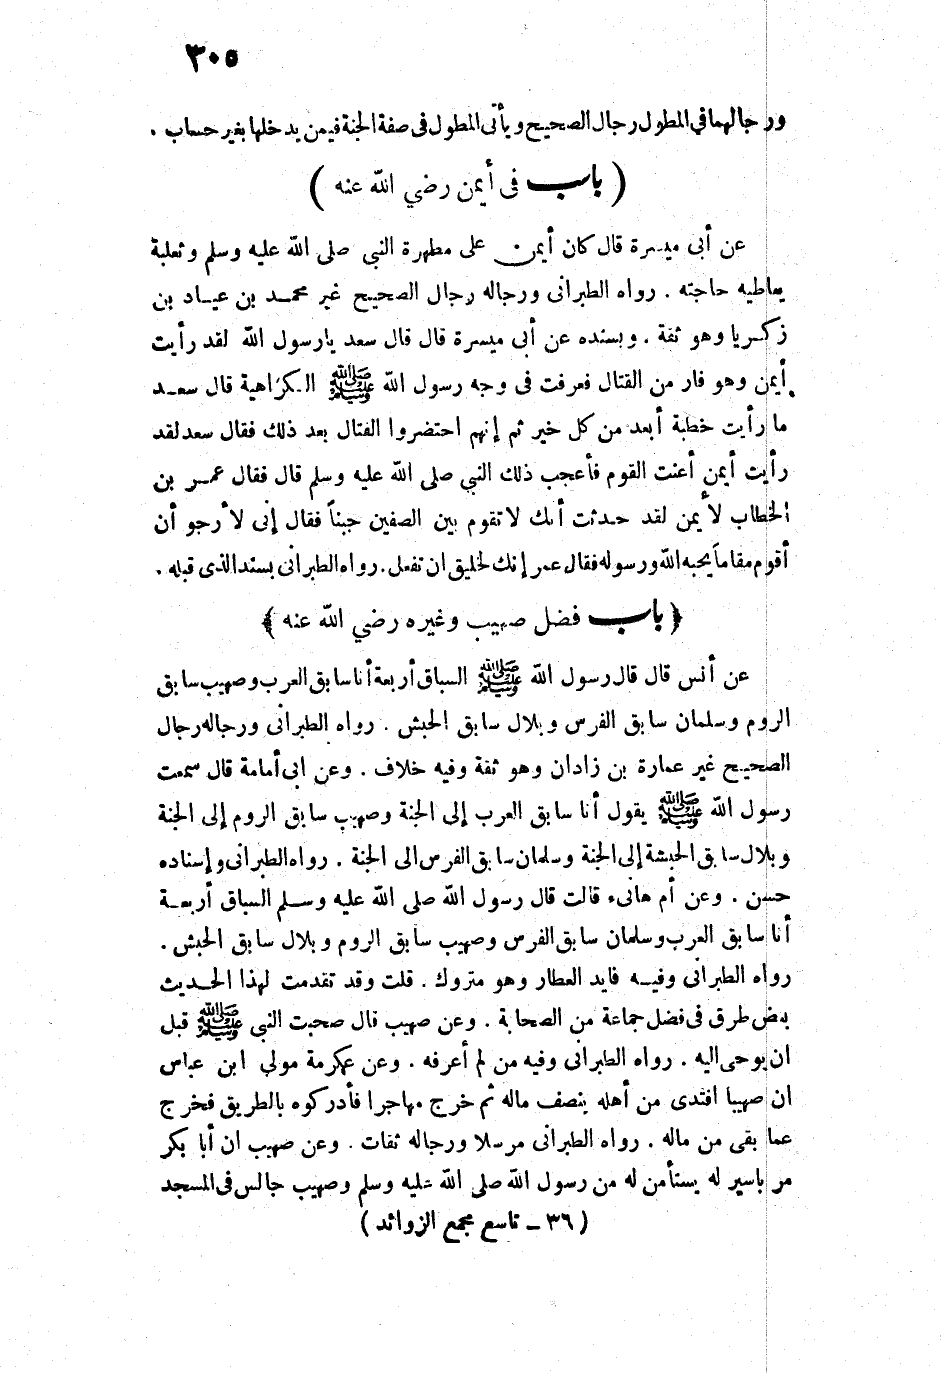 ٣٠٥
ورجالهما في المطول رجال الصحيح ويأتى المطول فى صفة الجنة فيمن يدخلها بغير حساب .
( باب فى أيمن رضي الله عنه )
عن أبى ميسرة قال كان أيمن على مطهرة النبي صلى الله عليه وسلم وثعلبة
يعاطيه حاجته . رواه الطبرانى ورجاله رجال الصحيح غير محمد بن عياد بن
زكريا وهو ثقة . وبسنده عن أبى ميسرة قال قال سعد يارسول الله لقد رأيت
أيمن وهو فار من القتال فعرفت فى وجه رسول الله ﷺ الكراهية قال سعد
ما رأيت خطبة أبعد من كل خير ثم إنهم احتضروا القتال بعد ذلك فقال سعد لقد
رأيت أيمن أعنت القوم فأعجب ذلك النبي صلى الله عليه وسلم قال فقال عمر بن
الخطاب لأيمن لقد حدثت أنك لا تقوم بين الصفين جبناً فقال إنى لأرجو أن
أقوم مقاماً يحبه الله ورسوله فقال عمر إنك لخليق ان تفعل . رواه الطبرانى بسند الذى قبله .
﴿ باب فضل صهيب وغيره رضي الله عنه ﴾
عن أنس قال قال رسول الله ﷺ السباق أربعة أنا سابق العرب وصهيب سابق
الروم وسلمان سابق الفرس وبلال سابق الحبش . رواه الطبرانى ورجاله رجال
الصحيح غير عمارة بن زاذان وهو ثقة وفيه خلاف . وعن ابى أمامة قال سمعت
رسول الله ﷺ يقول أنا سابق العرب إلى الجنة وصهيب سابق الروم إلى الجنة
وبلال سابق الحبشة إلى الجنة وسلمان سابق الفرس الى الجنة . رواه الطبرانى وإسناده
حسن . وعن أم هانىء قالت قال رسول الله صلى الله عليه وسلم السباق أربعة
أنا سابق العرب وسلمان سابق الفرس وصهيب سابق الروم وبلال سابق الحبش .
رواه الطبرانى وفيه فايد العطار وهو متروك . قلت وقد تقدمت لهذا الحديث
بعض طرق فى فضل جماعة من الصحابة . وعن صهيب قال صحبت النبي ﷺ قبل
ان يوحى اليه . رواه الطبرانى وفيه من لم أعرفه . وعن عكرمة مولي ابن عباس
ان صهيبا افتدى من أهله بنصف ماله ثم خرج مهاجرا فأدركوه بالطريق فخرج
عما بقى من ماله . رواه الطبرانى مرسلا ورجاله ثقات . وعن صهيب ان أبا بكر
مر باسير له يستأمن له من رسول الله صلى الله عليه وسلم وصهيب جالس فى المسجد
( ٣٦ - تاسع مجمع الزوائد )